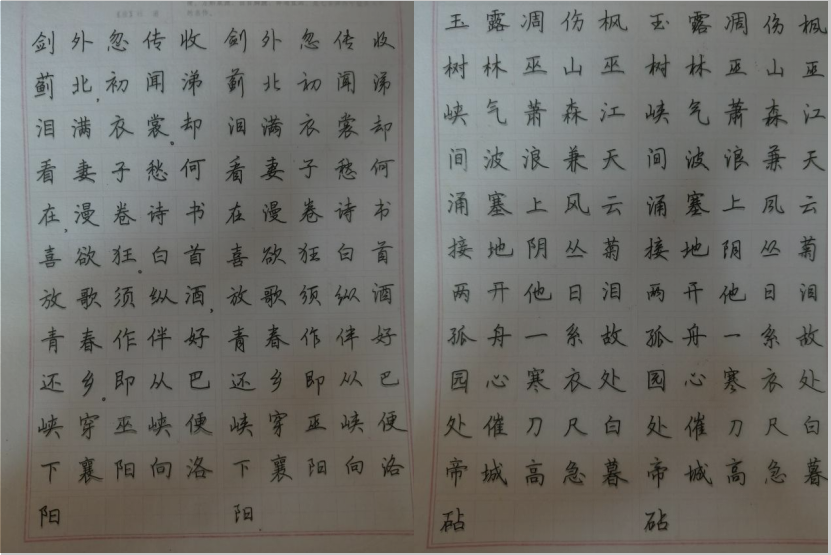 剑外忽传收 剑外忽传收
蓟北,初闻涕 蓟北初闻涕
泪满衣裳。却 泪满衣裳却
看妻子愁何 看妻子愁何
在,漫卷诗书 在漫卷诗书
喜欲狂。白首 喜欲狂白首
放歌须纵酒, 放歌须纵酒
青春作伴好 青春作伴好
还乡。即从巴 还乡即从巴
峡穿巫峡便 峡穿巫峡便
下襄阳向洛 下襄阳向洛
阳 阳
玉露凋伤枫 玉露凋伤枫
树林巫山巫 树林巫山巫
峡气萧森江 峡气萧森江
间波浪兼天 间波浪兼天
涌塞上风云 涌塞上风云
接地阴丛菊 接地阴丛菊
两开他日泪 两开他日泪
孤舟一系故 孤舟一系故
园心寒衣处 园心寒衣处
处催刀尺白 处催刀尺白
帝城高急暮 帝城高急暮
砧 砧